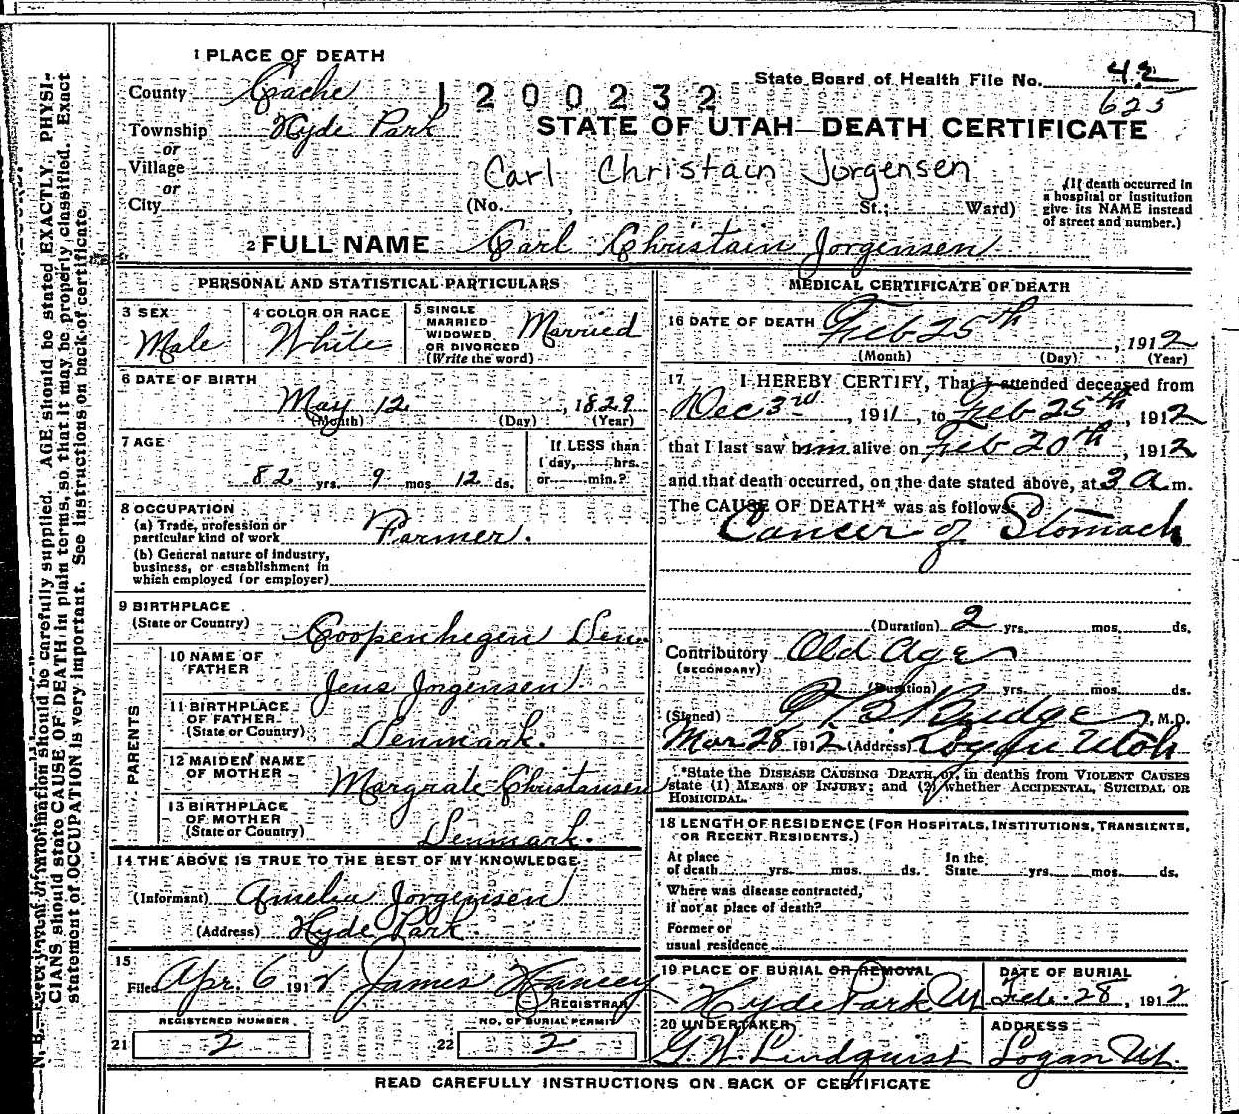 1 PLACE OF DEATH
State Board of Health File No. 42
County Cache
1200232
625
Township Hyde Park
STATE OF UTAH—DEATH CERTIFICATE
or
Village
Carl Christain Jorgensen
or
City
(No. , St.; Ward)
(If death occurred in
a hospital or institution
give its NAME instead
of street and number.)
2 FULL NAME Carl Christain Jorgensen
PERSONAL AND STATISTICAL PARTICULARS
3 SEX
Male
4 COLOR OR RACE
White
5 SINGLE
MARRIED
WIDOWED
OR DIVORCED
(Write the word)
Married
6 DATE OF BIRTH
May 12, 1829
(Month) (Day) (Year)
7 AGE
82 yrs. 9 mos 12 ds.
If LESS than
1 day, hrs.
or min.?
8 OCCUPATION
(a) Trade, profession or
particular kind of work Farmer.
(b) General nature of industry,
business, or establishment in
which employed (or employer)
9 BIRTHPLACE
(State or Country) Coopenhegen Den.
PARENTS
10 NAME OF
FATHER
Jens Jorgensen
11 BIRTHPLACE
OF FATHER
(State or Country)
Denmark.
12 MAIDEN NAME
OF MOTHER
Margrate Christansen
13 BIRTHPLACE
OF MOTHER
(State or Country)
Denmark.
14 THE ABOVE IS TRUE TO THE BEST OF MY KNOWLEDGE.
(Informant) Amelia Jorgensen
(Address) Hyde Park.
15
Filed Apr. 6 1912 James Hancey
REGISTRAR
REGISTERED NUMBER
21 2
NO. OF BURIAL PERMIT
22 2
MEDICAL CERTIFICATE OF DEATH
16 DATE OF DEATH Feb 25th
, 1912
(Month) (Day) (Year)
17 I HEREBY CERTIFY, That I attended deceased from
Dec 3rd, 1911, to Feb 25th, 1912
that I last saw him alive on Feb 20th, 1912
and that death occurred, on the date stated above, at 3 a m.
The CAUSE OF DEATH* was as follows:
Cancer of Stomach
(Duration) 2 yrs. mos. ds.
Contributory Old Age
(SECONDARY)
(Duration) yrs. mos. ds.
(Signed) Budge, M.D.
Mar 28 1912 (Address) Logan Utah
*State the DISEASE CAUSING DEATH, or, in deaths from VIOLENT CAUSES
state (1) MEANS OF INJURY; and (2) whether ACCIDENTAL, SUICIDAL OR
HOMICIDAL.
18 LENGTH OF RESIDENCE (FOR HOSPITALS, INSTITUTIONS, TRANSIENTS,
OR RECENT RESIDENTS.)
At place
of death yrs. mos. ds.
In the
State yrs. mos. ds.
Where was disease contracted,
if not at place of death?
Former or
usual residence
19 PLACE OF BURIAL OR REMOVAL
Hyde Park Ut
DATE OF BURIAL
Feb. 28, 1912
20 UNDERTAKER
G. W. Lindquist
ADDRESS
Logan Ut.
READ CAREFULLY INSTRUCTIONS ON BACK OF CERTIFICATE
N. B. Every item of information should be carefully supplied. AGE should be stated EXACTLY. PHYSI-
CIANS should state CAUSE OF DEATH in plain terms, so that it may be properly classified. Exact
statement of OCCUPATION is very important. See instructions on back of certificate.